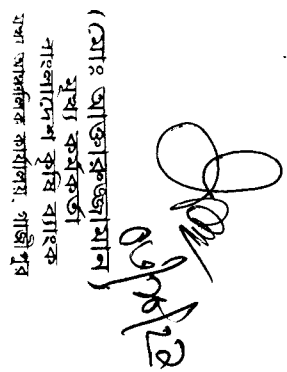 (মোঃ আক্তারুজ্জামান)
মুখ্য কর্মকর্তা
বাংলাদেশ কৃষি ব্যাংক
মুখ্য আঞ্চলিক কার্যালয়, গাজীপুর